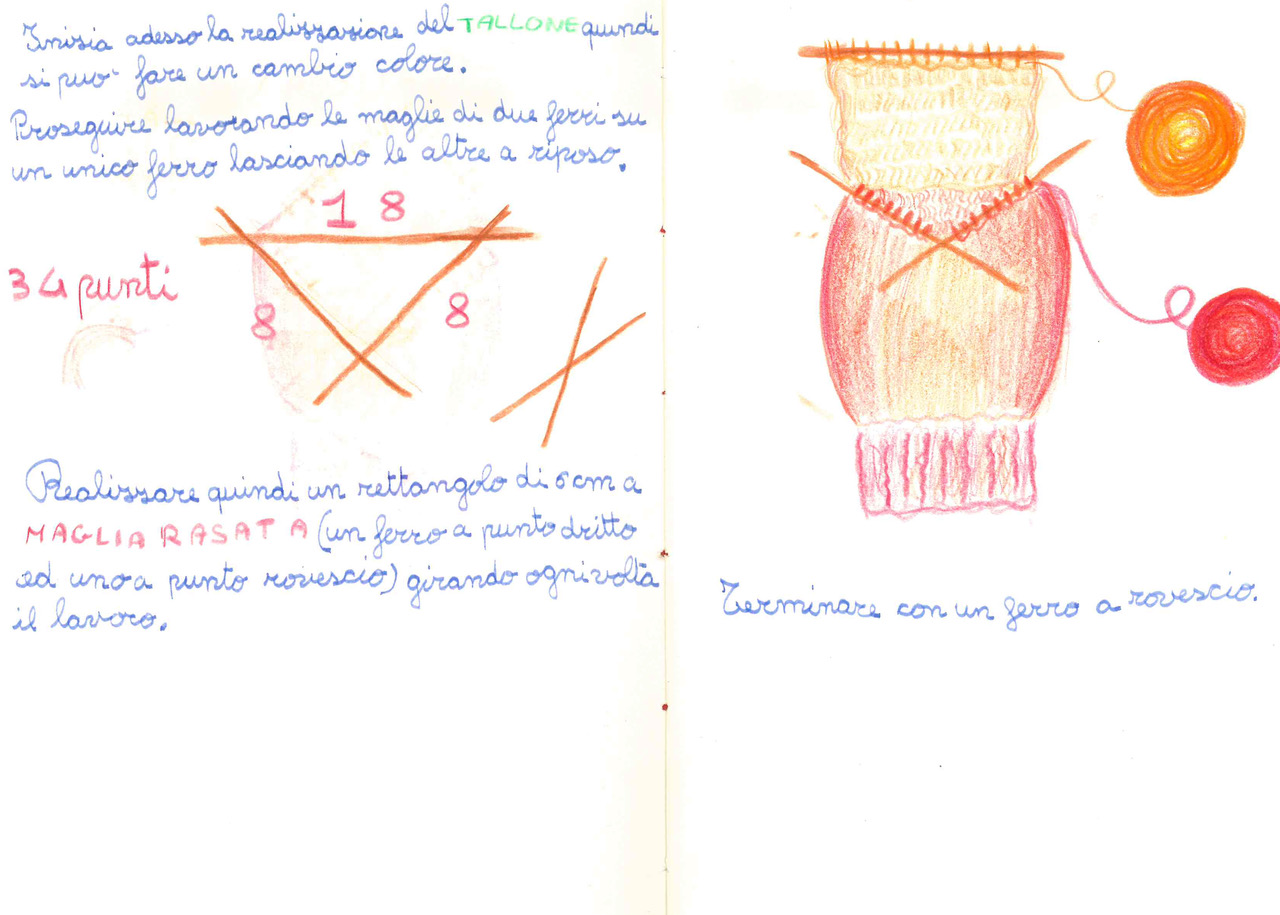 Inizia adesso la realizzazione del TALLONE quindi
si puo' fare un cambio colore.
Proseguire lavorando le maglie di due ferri su
un unico ferro lasciando le altre a riposo.
18
34 punti
8
8
Realizzare quindi un rettangolo di 6 cm a
MAGLIA RASATA (un ferro a punto dritto
ed uno a punto rovescio) girando ogni volta
il lavoro.
Terminare con un ferro a rovescio.